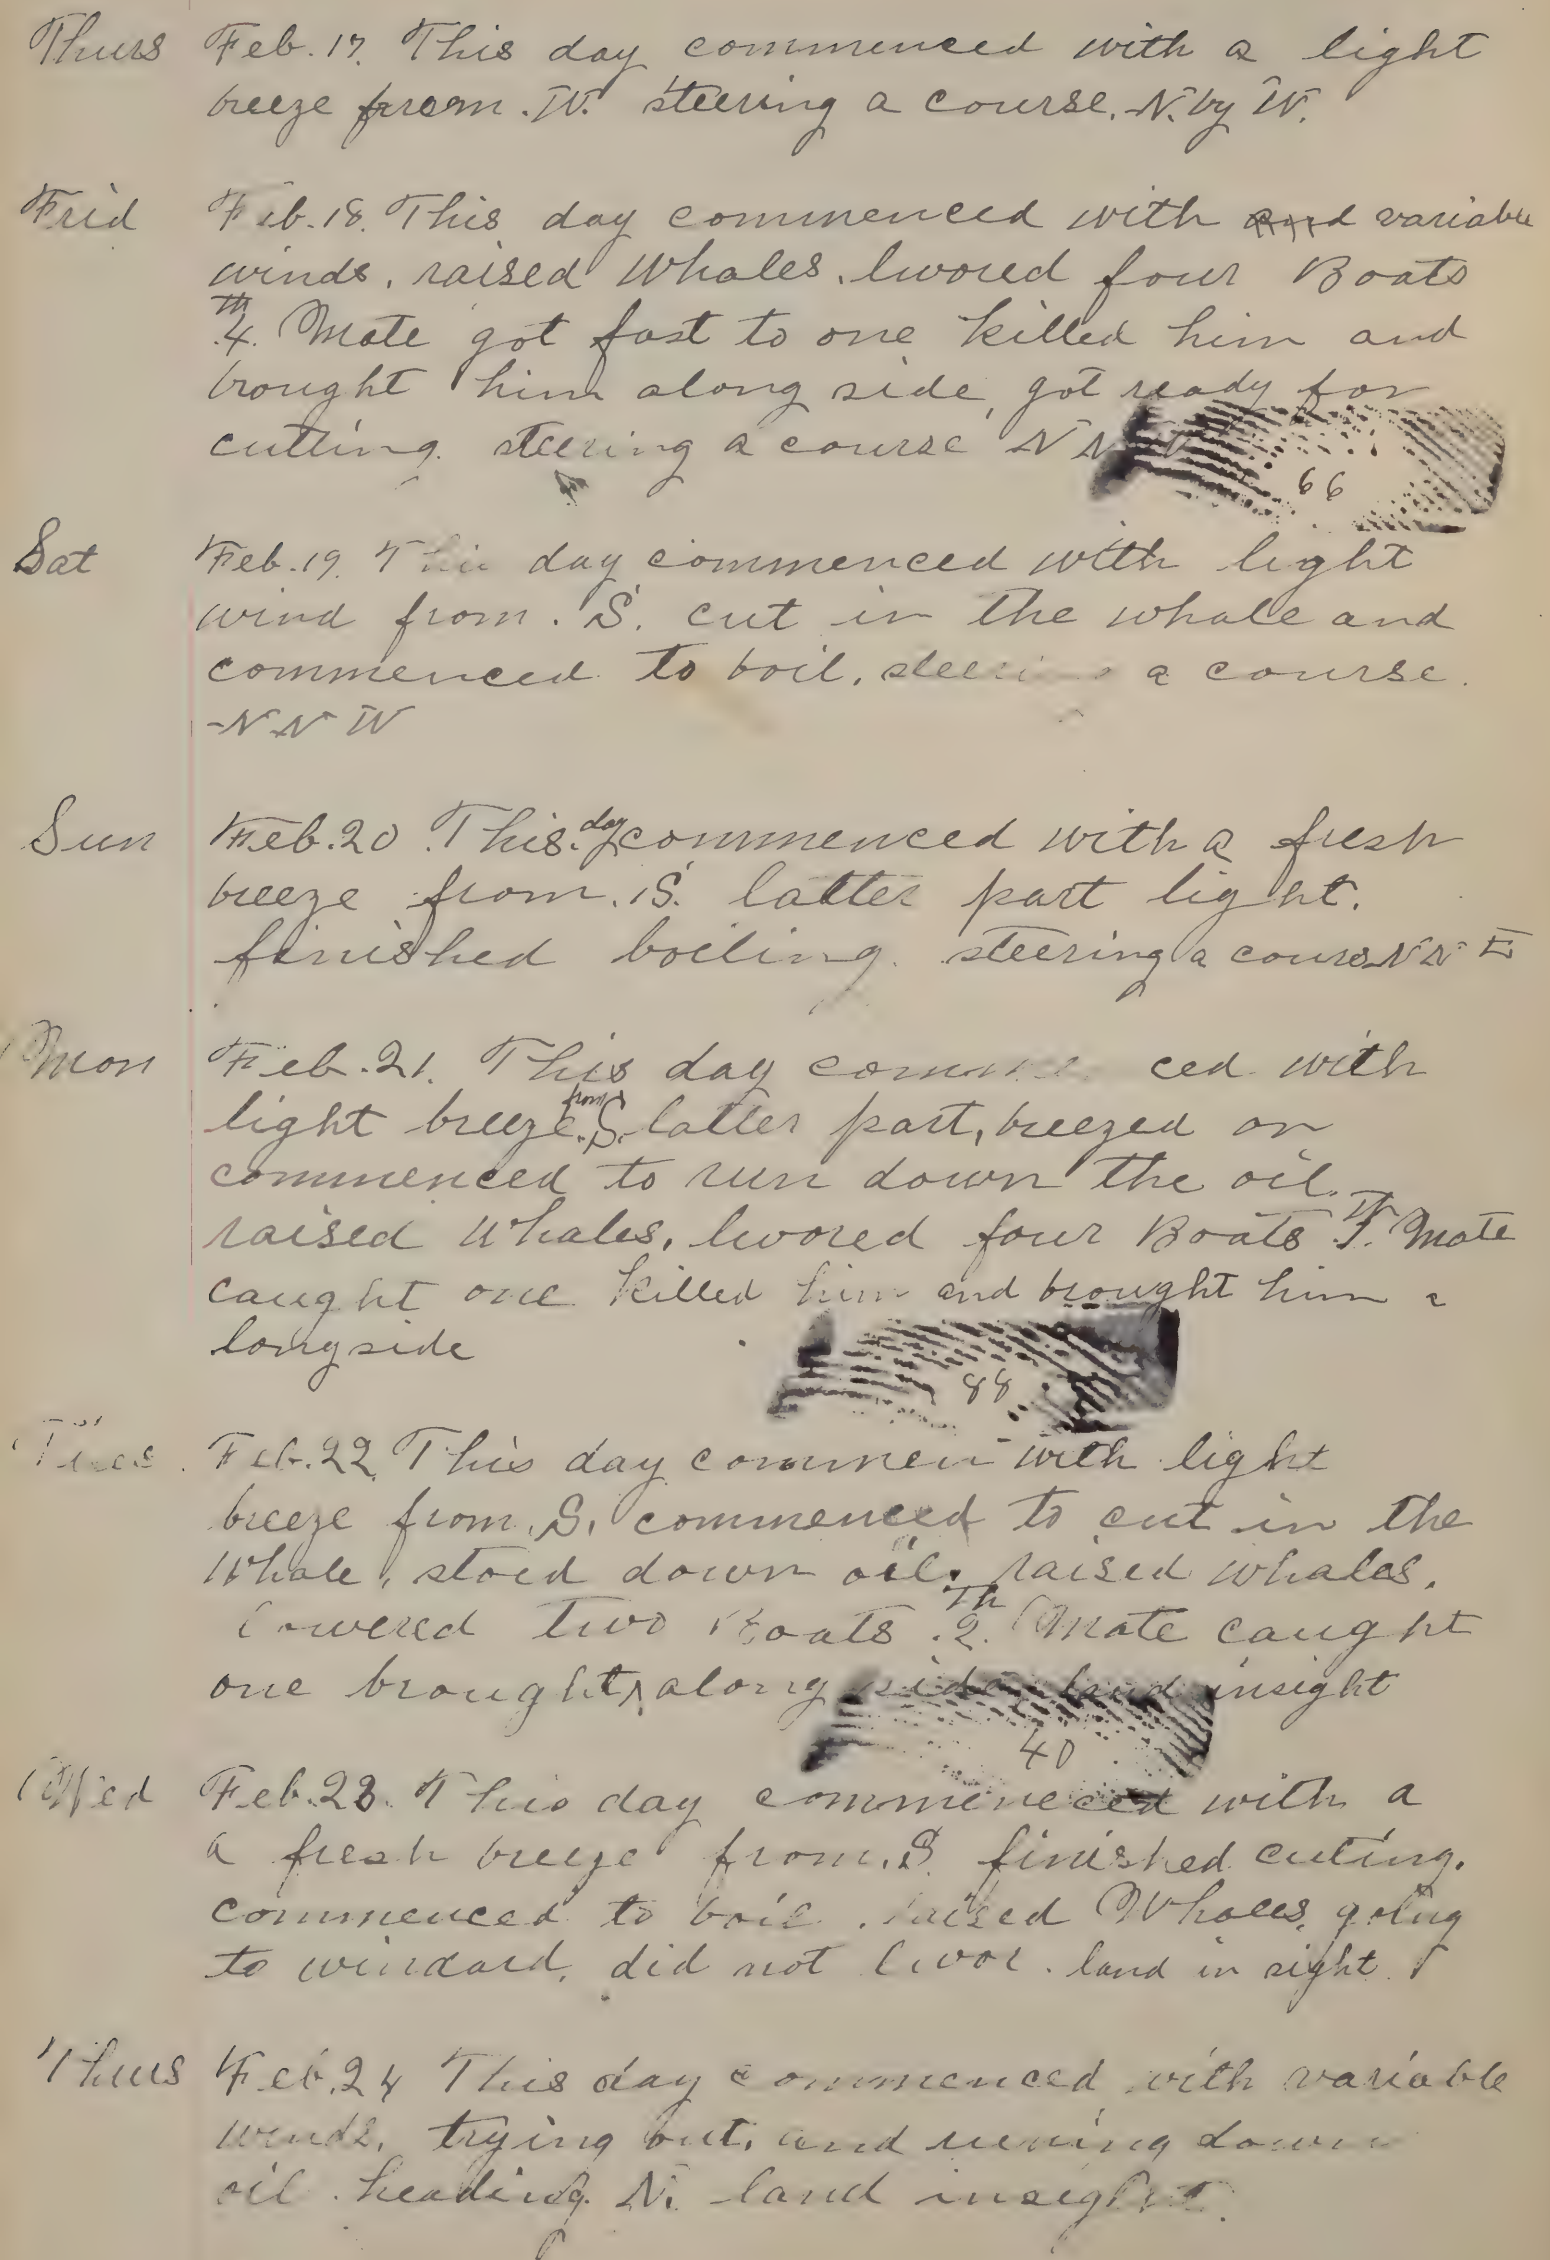 Thurs Feb. 17. This day commenced with a light
breeze from. W. steering a course. N. by W.
Frid Feb. 18. This day commenced with variable
winds, raised Whales. lwored four Boats
4.Th Mate got fast to one killed him and
brought him along side, got ready for
cutting. steering a course N N
66
Sat Feb. 19. This day commenced with light
wind from. S. cut in the whale and
commenced to boil. steering a course.
N N W
Sun Feb. 20. This day commenced with a fresh
breeze from. S. latter part light.
finished boiling. steering a course N N E
Mon Feb. 21. This day commenced with
light breeze. from S. latter part, breezed on
commenced to run down the oil.
raised Whales, lwored four Boats Mate
caught one killed him and brought him a
longside
88
Tues. Feb. 22. This day commen with light
breeze from. S. commenced to cut in the
Whale, stoed down oil. raised whales.
Lowered two Boats 2.Th Mate caught
one brought along side land insight
40
Wed Feb. 23. This day commenced with a
a fresh breeze from. S. finished cuting.
commenced to boil. raised Whales, going
to windard, did not lwor. land in sight
Thurs Feb. 24 This day commenced with variable
winds, trying out, and runing down
oil. heading. N. land insight.